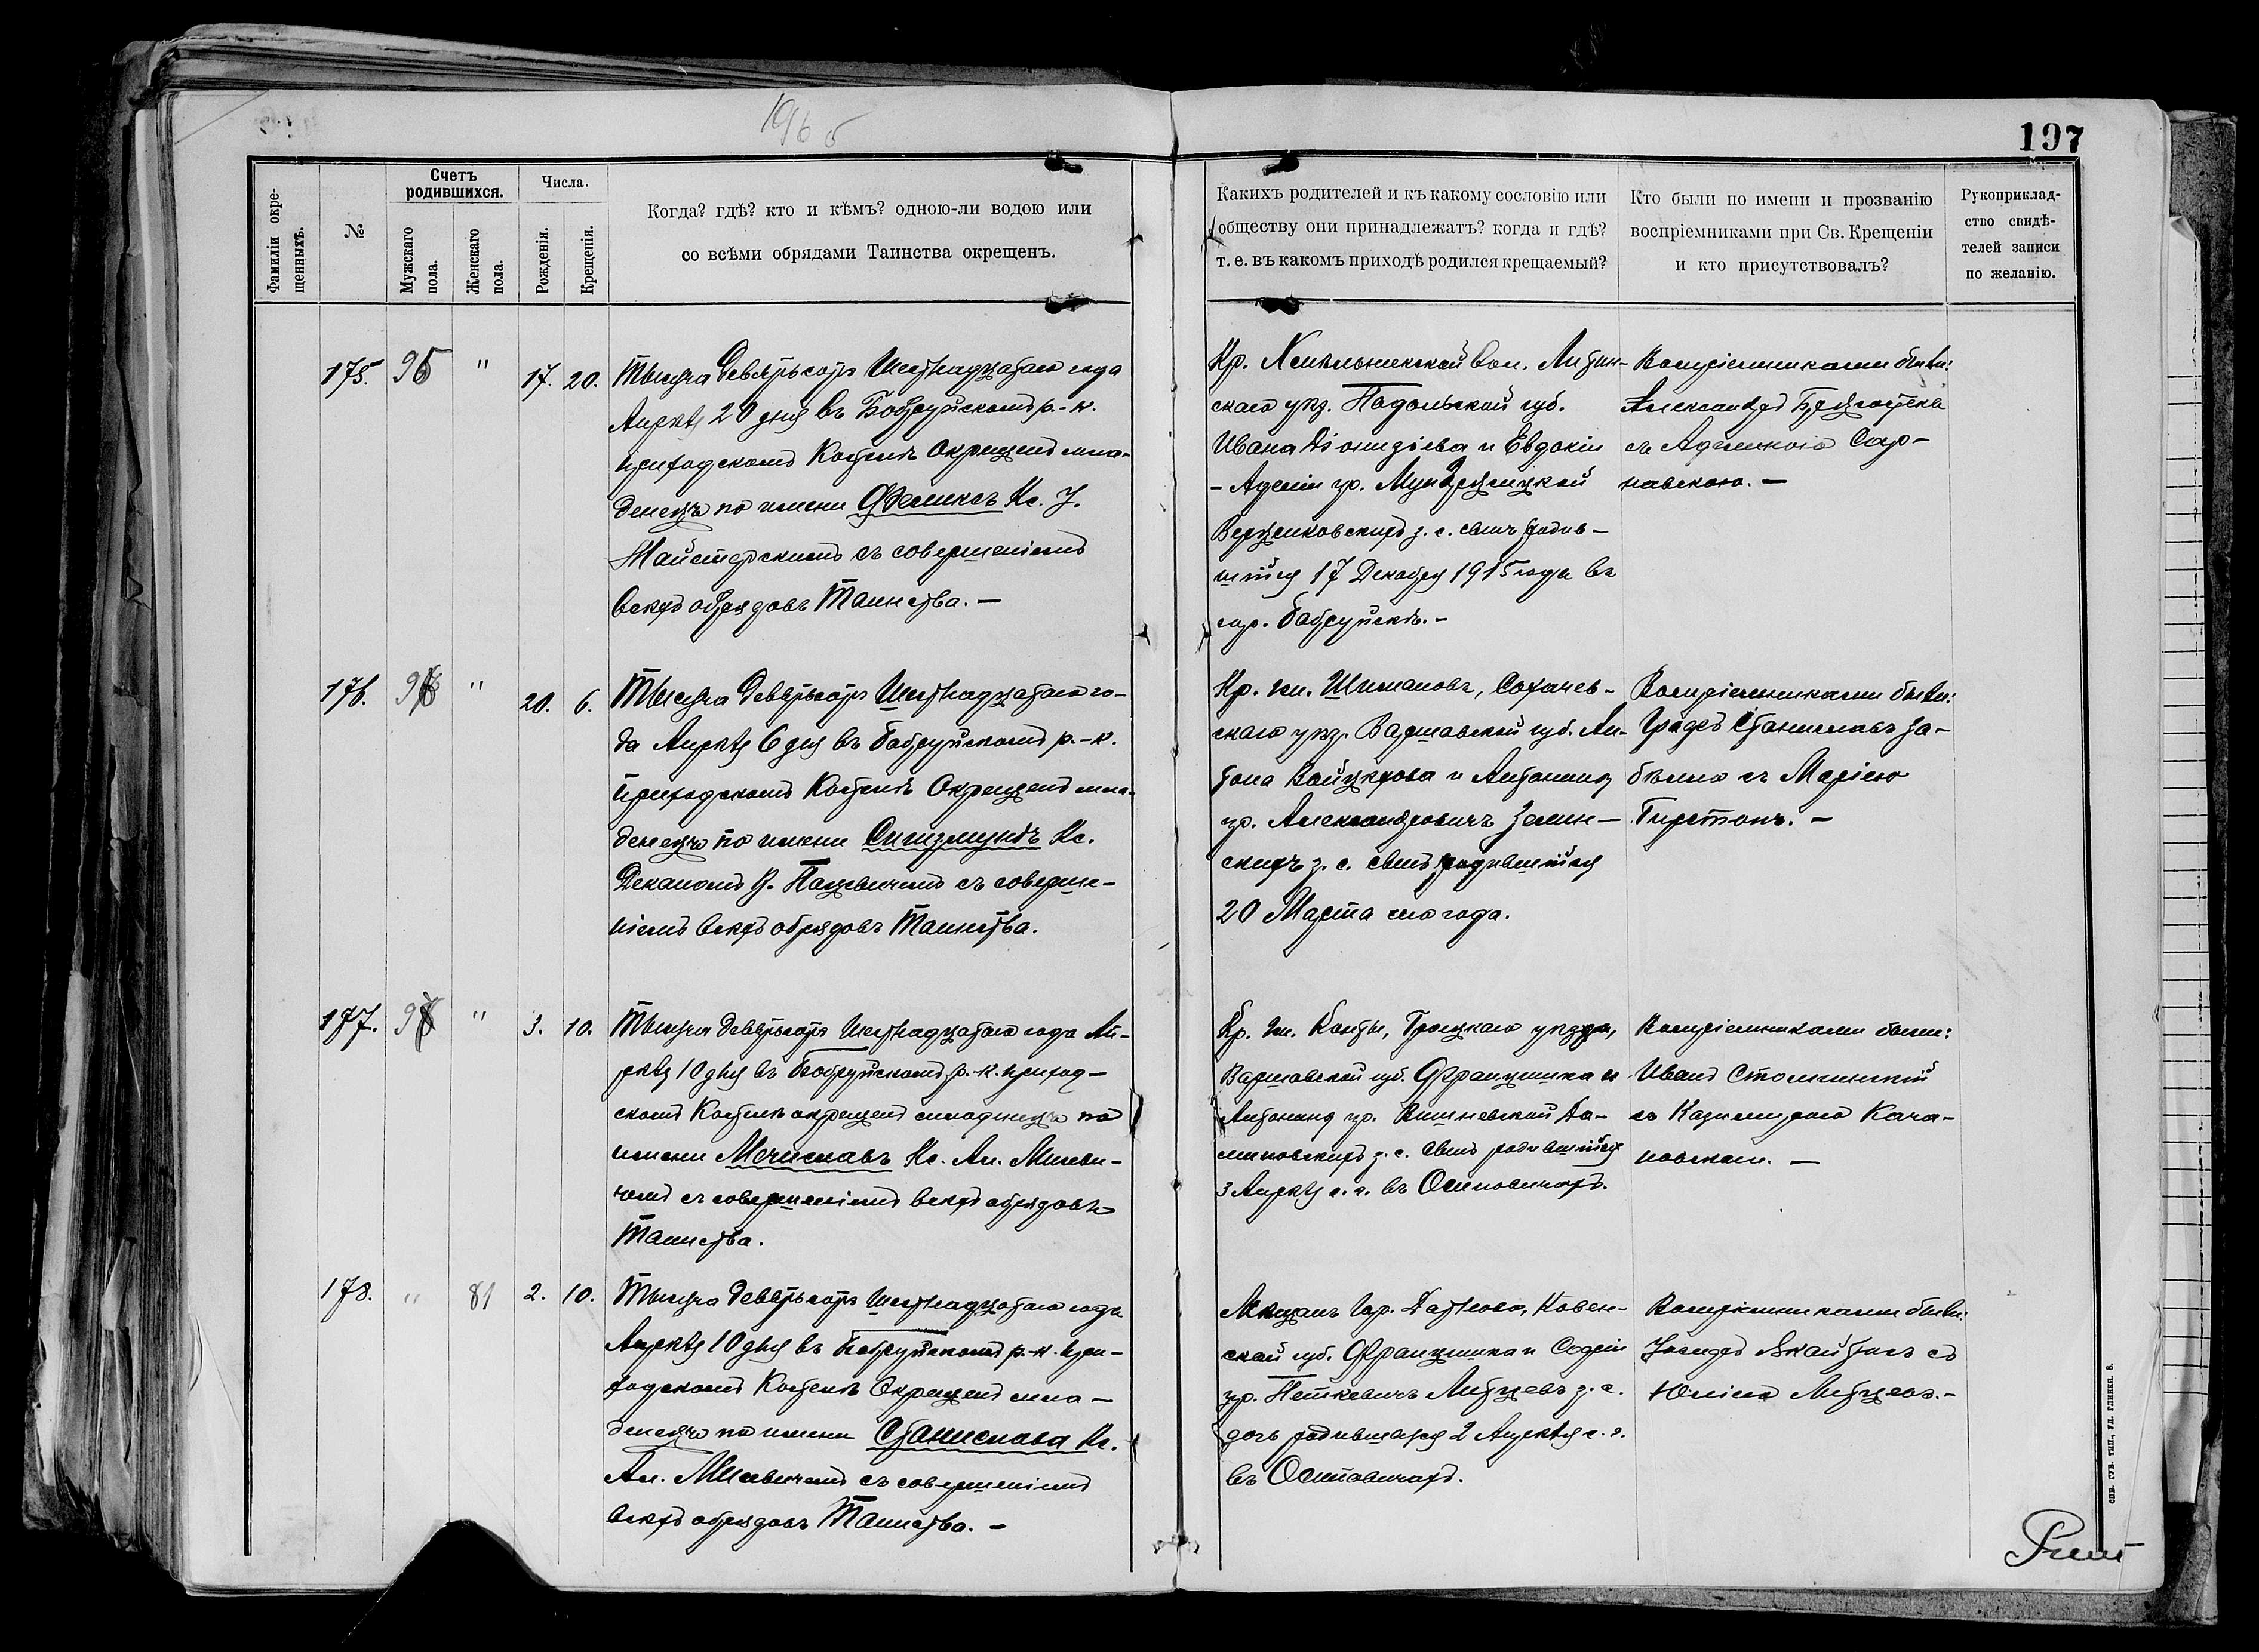 196 б
197
Фамиліи окре-
щенныхъ.
№
Счетъ
родившихся.
Мужскаго
пола.
Женскаго
пола.
Числа.
Рожденія.
Крещенія.
Когда? гдѣ? кто и кѣмъ? одною-ли водою или
со всѣми обрядами Таинства окрещенъ.
Какихъ родителей и къ какому сословію или
обществу они принадлежатъ? когда и гдѣ?
т. е. въ какомъ приходѣ родился крещаемый?
Кто были по имени и прозванію
воспріемниками при Св. Крещеніи
и кто присутствовалъ?
Рукоприклад-
ство свидѣ-
телей записи
по желанію.
175. 95 " 17. 20.
Тысяча девятьсотъ Шестнадцатаго года
Апрѣля 20 дня въ Бобруйскомъ р.-к.
приходскомъ Костелѣ Окрещенъ мла-
денецъ по имени Феликсъ Кс. І.
Майстерскимъ съ совершеніемъ
всѣхъ обрядовъ Таинства. —
Кр. Хмѣльникской вол. Литин-
скаго уѣз. Подольской губ.
Ивана Діонизіева и Евдокіи
- Аделіи ур.
з. с. сынъ родив-
шійся 17 Декабря 1915 года въ
гор. Бобруйскѣ. -
Воспріемниками были:
Александръ
съ Аделиною Сар-
навскою. —
176. 96 " 20. 6.
Тысяча девятьсотъ Шестнадцатаго го-
да Апрѣля 6 дня въ Бобруйскомъ р.-к.
приходскомъ Костелѣ Окрещенъ мла-
денецъ по имени Сигизмундъ Кс.
Деканомъ В. Пацевичемъ съ соверше-
ніемъ всѣхъ обрядовъ Таинства.
Кр. гм. Шимановъ, Сохачев-
скаго уѣз. Варшавской губ. Ан-
тона Войцѣхова и Антонины
ур. Александровичъ Зелин-
скихъ з. с. сынъ родившійся
20 Марта сего года.
Воспріемниками были:
Станиславъ За-
бѣлло съ Маріею
177. 97 " 3. 10.
Тысяча девятьсотъ Шестнадцатаго года Ап-
рѣля 10 дня въ Бобруйскомъ р.-к. приход-
скомъ Костелѣ окрещенъ младенецъ по
имени Мечиславъ Кс. Ал. Милеви-
чемъ съ совершеніемъ всѣхъ обрядовъ
Таинства.
Кр. гм. Конты, Гроецкаго уѣзда,
Варшавской губ. Францишка и
Антонины ур. Вишневской До-
миновскихъ з. с. сынъ родившійся
3 Апрѣля с. г. въ Осиповичахъ.
Воспріемниками были:
Иванъ
съ Казимирою Кача-
новскою. —
178. " 81 2. 10.
Тысяча девятьсотъ Шестнадцатаго года
Апрѣля 10 дня въ Бобруйскомъ р.-к. при-
ходскомъ Костелѣ Окрещена мла-
денецъ по имени Станислава Кс.
Ал. Милевичемъ съ совершеніемъ
всѣхъ обрядовъ Таинства. —
Мѣщанъ гор. Датново, Ковен-
ской губ. Францишка и Софіи
ур. Петкевичъ Литцевъ з. с.
дочь родившаяся 2 Апрѣля с. г.
въ Осиповичахъ.
Воспріемниками были:
Іосифъ съ
Юліею Литцевъ. -
СПБ. ГУБ. ТИП., УЛ. ГЛИНКИ, 8.